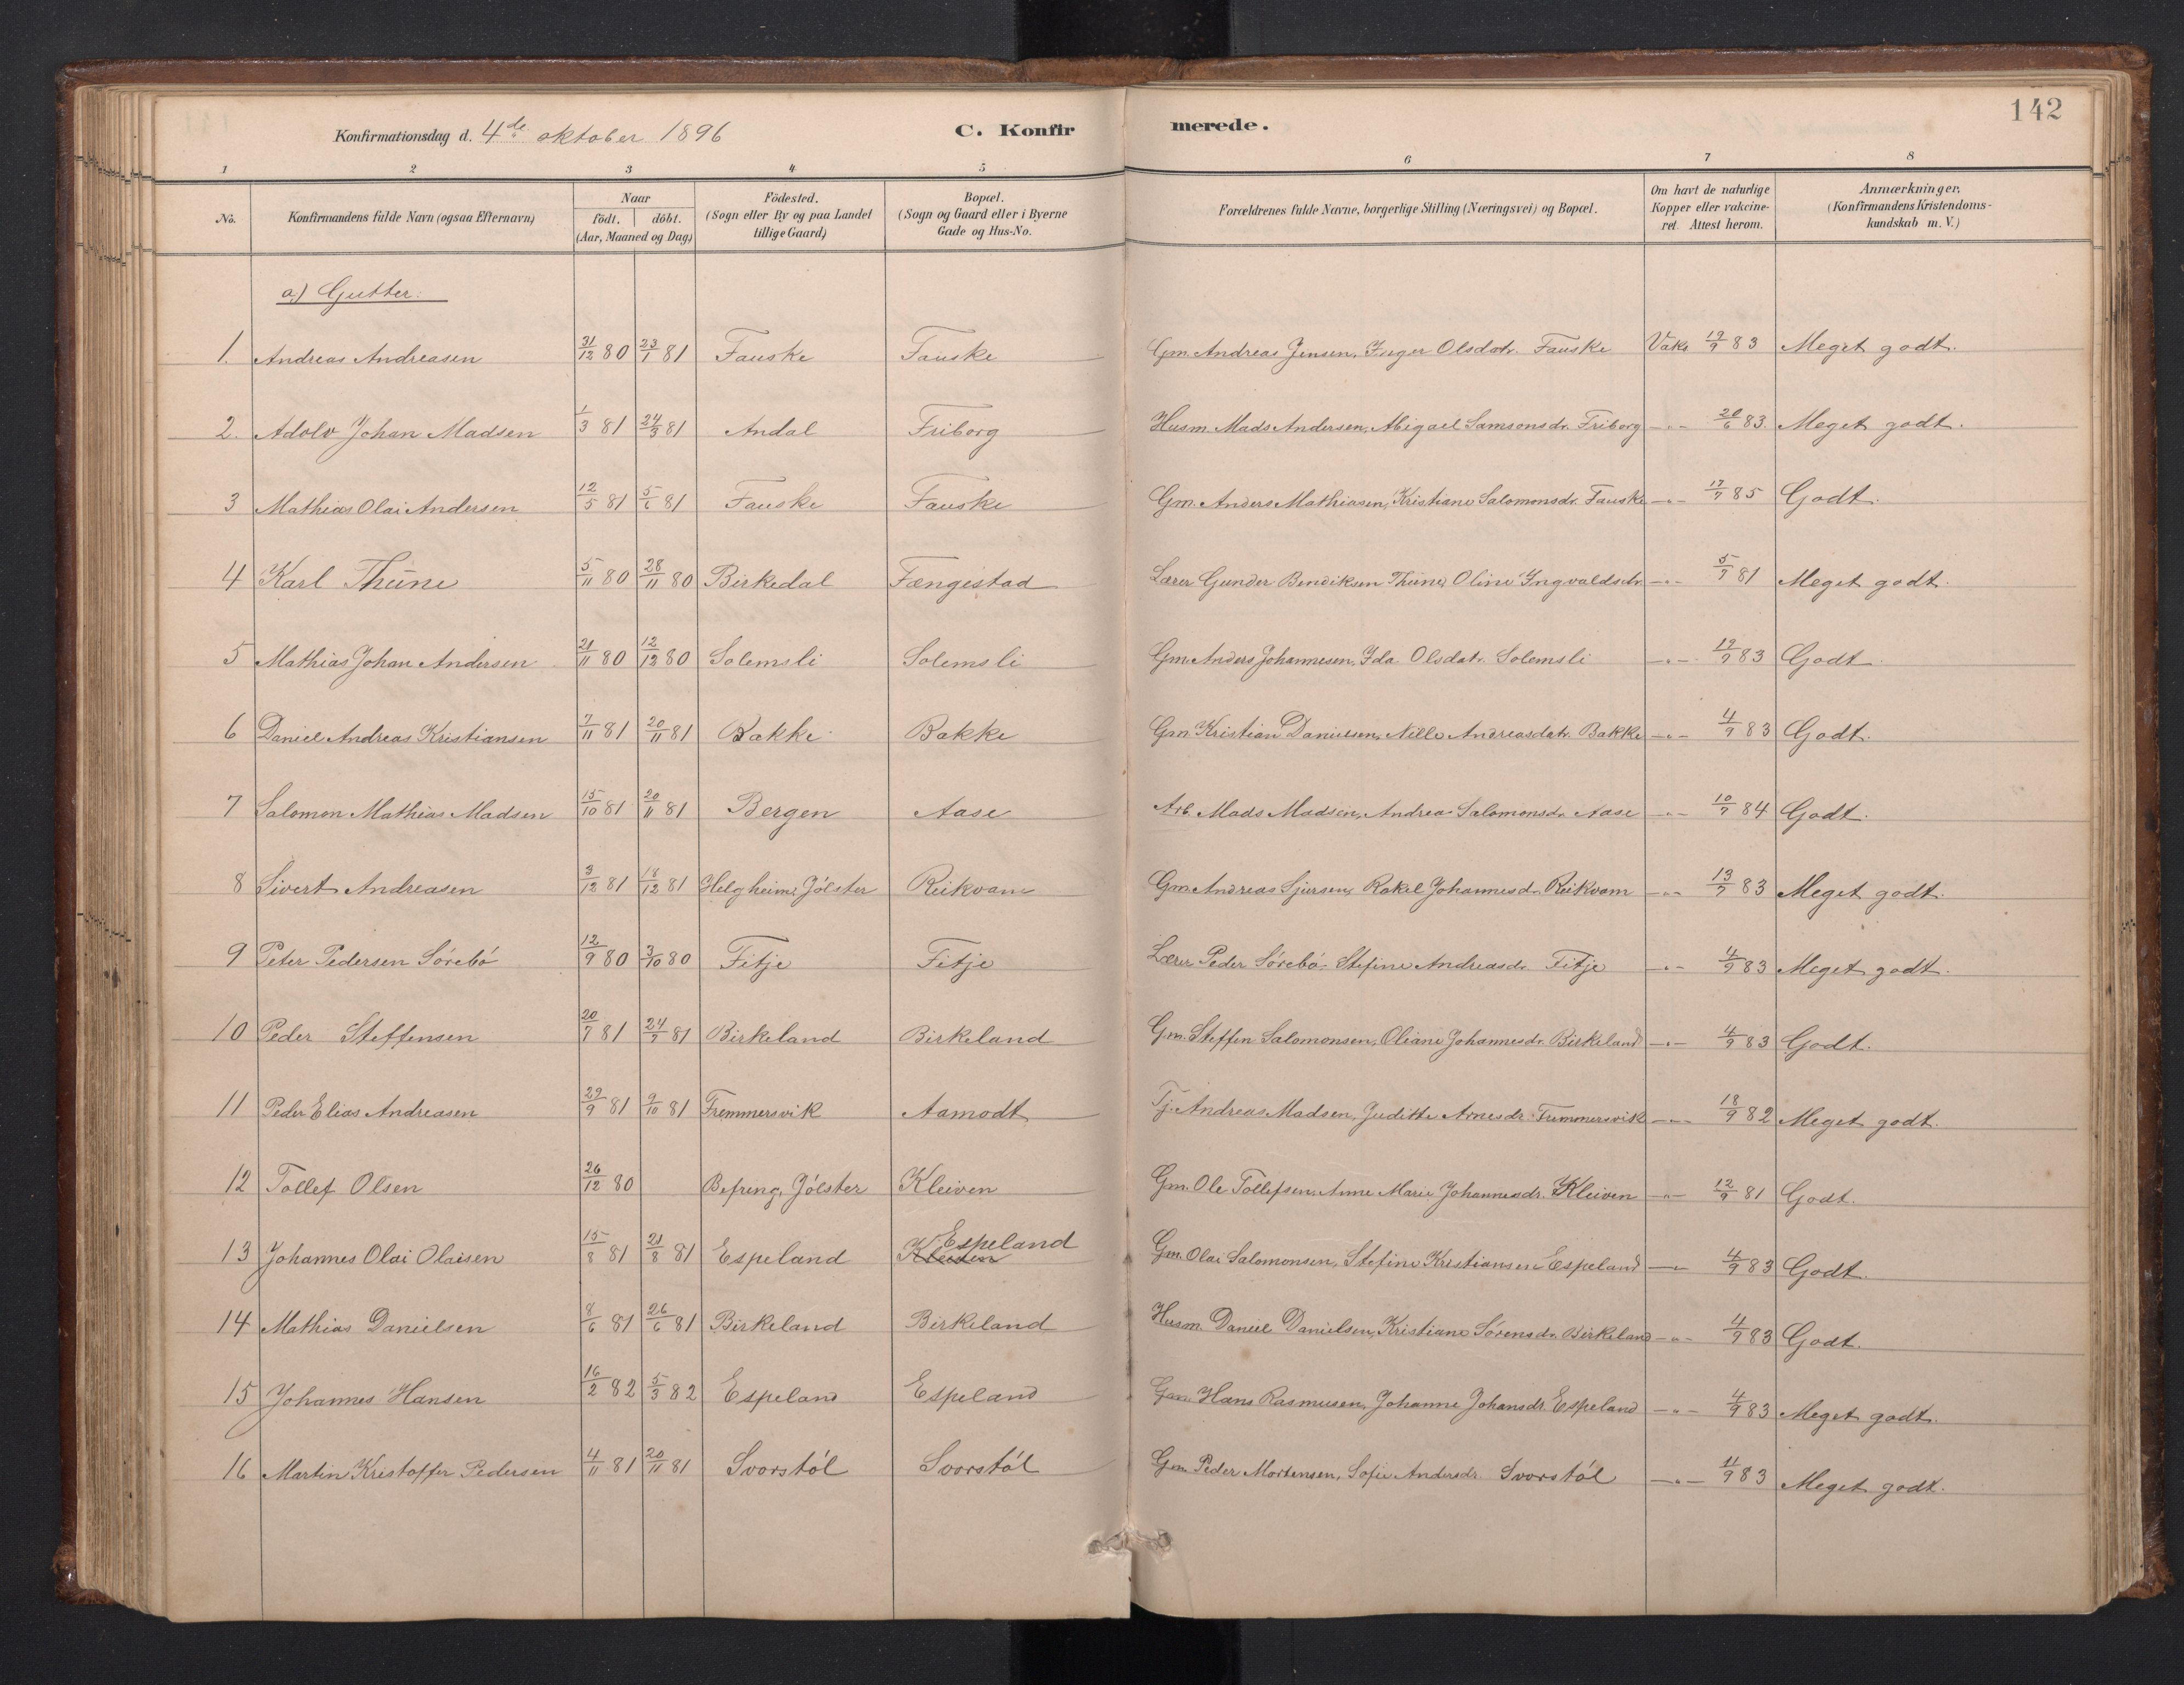 142
Konfirmationsdag d. 4de oktober 1896 C. Konfir merede.
1 2 3 4 5 6 7 8
No. Konfirmandens fulde Navn (ogsaa Efternavn) Naar födt. döbt. (Aar, Maaned og Dag) Födested. (Sogn eller By og paa Landet tillige Gaard) Bopæl. (Sogn og Gaard eller i Byerne Gade og Hus-No. Forældrenes fulde Navne, borgerlige Stilling (Næringsvei) og Bopæl. Om havt de naturlige Kopper eller vakcineret. Attest herom. Anmærkninger. (Konfirmandens Kristendomskundskab m. V.)
a) Gutter:
1. Andreas Andreasen 31/12 80 23/1 81 Fauske Fauske Gm. Andreas Jensen, Inger Olsdatr. Fauske Vaks 19/9 83 Meget godt.
2. Adolv Johan Madsen 1/3 81 24/3 81 Andal Friborg Husm. Mads Andersen, Abigael Samsonsdr. Friborg -"- 20/6 83. Meget godt.
3 Mathias Olai Andersen 12/5 81 5/6 81 Fauske Fauske Gm. Anders Mathiasen, Kristiane Salomonsdr. Fauske -"- 17/7 85 Godt.
4 Karl Thüne 5/11 80 28/11 80 Birkedal Fængestad Lærer Gunder Bendiksen Thüne, Oline Ingvaldsdr. -"- 5/7 81 Meget godt.
5 Mathias Johan Andersen 21/11 80 12/12 80 Solemsli Solemsli Gm. Anders Johannesen, Ida Olsdatr. Solemsli -"- 19/9 83 Godt.
6 Daniel Andreas Kristiansen 7/11 81 20/11 81 Bakke Bakke Gm. Kristian Danielsen, Nille Andreasdatr. Bakke -"- 4/9 83 Godt.
7 Salomon Mathias Madsen 15/10 81 20/11 81 Bergen Aase Arb. Mads Madsen, Andrea Salomonsdr. Aase -"- 10/7 84 Godt.
8 Sivert Andreasen 3/12 81 18/12 81 Helgheim, Jölster Reikvam Gm Andreas Sjursen, Rakel Johannesdr. Reikvam -"- 13/7 83 Meget godt.
9 Peter Pedersen Sörebö 12/9 80 3/10 80 Fitje Fitje Lærer Peder Sörebö, Stefine Andreasdr. Fitje -"- 4/9 83 Meget godt.
10 Peder Steffensen 20/7 81 24/7 81 Birkeland Birkeland Gm. Steffen Salomonsen, Oliane Johannesdr. Birkeland -"- 4/9 83 Godt.
11 Peder Elias Andreasen 29/9 81 9/10 81 Fremmersvik Aamodt Tj. Andreas Madsen, Juditte Arnesdr. Fremmersvik -"- 18/9 82 Meget godt.
12 Tollef Olsen 26/12 80 Befring, Jölster Kleiven Gm. Ole Tollefsen, Anne Marie Johannesdr. Kleiven -"- 12/9 81 Godt.
13 Johannes Olai Olaisen 15/8 81 21/8 81 Espeland Kleiven Espeland Gm. Olai Salomonsen, Stefine Kristiansen Espeland -"- 4/9 83 Godt.
14 Mathias Danielsen 8/6 81 26/6 81 Birkeland Birkeland Husm. Daniel Danielsen, Kristiane Sörensdr. Birkeland -"- 4/9 83 Godt.
15 Johannes Hansen 16/2 82 5/3 82 Espeland Espeland Gm. Hans Rasmusen, Johanne Johansdr. Espeland -"- 4/9 83 Meget godt.
16 Martin Kristoffer Pedersen 4/11 81 20/11 81 Svorstöl Svorstöl Gm. Peder Mortensen, Sofie Andersdr. Svorstöl -"- 4/9 83 Meget godt.